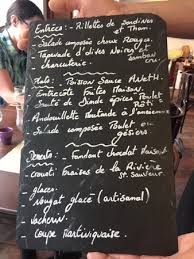 Entrées: - Rillettes de Sardines et Thon.
- Salade composée choux Rouges.
- Tapenade d'olives Noires et Jambon cru
charcuterie.
Plats: - Poisson Sauce
- Entrecôte Frites Maison
- Sauté de Dinde épices Poulet Rôti
- Andouillette Moutarde à l'ancienne
- Salade composée Poulet ou gésiers
Desserts: - Fondant chocolat Maison
- Fraises de la Rivière St. Sauveur
- glaces
- Nougat glacé (artisanal)
- Vacherin
- Coupe Martiniquaise.